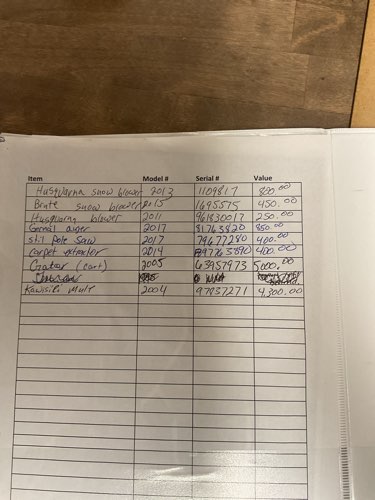 Item Model # Serial # Value
Husqvarna snow blower 2013 1109817 800.00
Brute snow blower 2015 1695575 450.00
Husqvarna blower 2011 961830017 250.00
auger 2017 81763820 850.00
stil Pole saw 2017 79677280 400.00
carpet extractor 2014 400.00
Gator (cart) 2005 63957973 5000.00
Kawisiki mule 2004 97937271 4,300.00